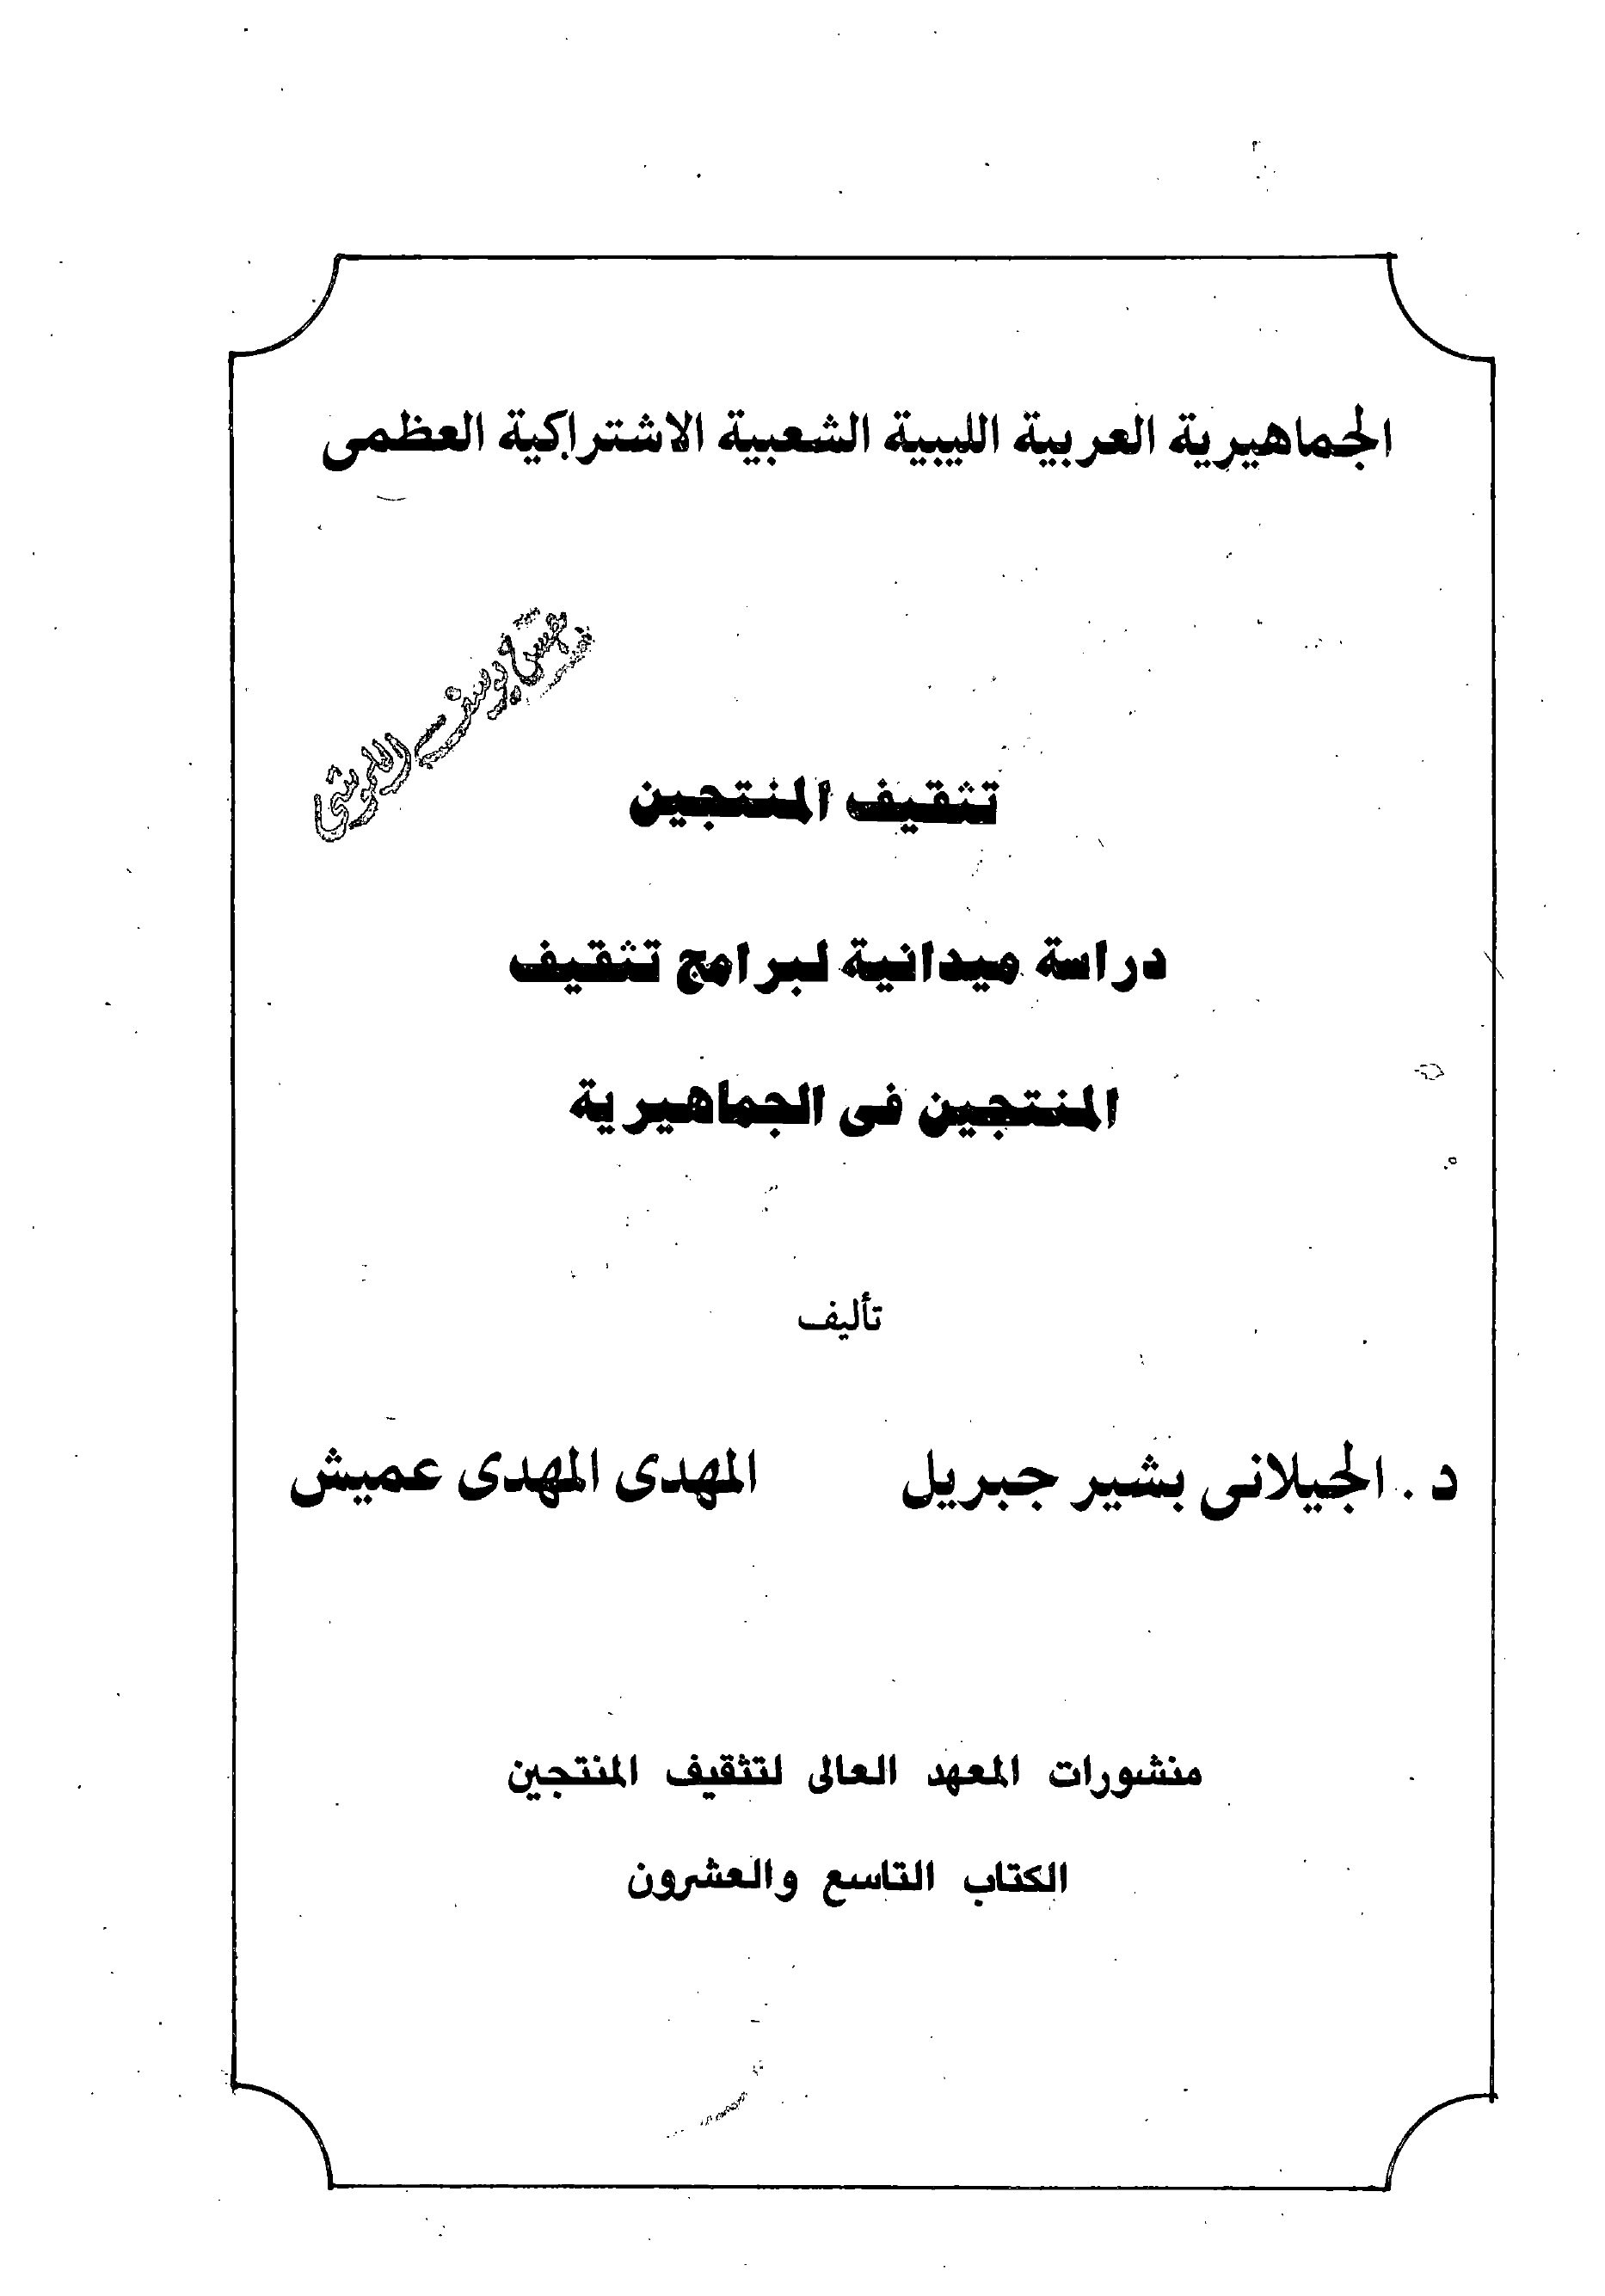 الجماهيرية العربية الليبية الشعبية الاشتراكية العظمى
يوسف
تثقيف المنتجين
دراسة ميدانية لبرامج تثقيف
المنتجين فى الجماهيرية
تأليف
د. الجيلانى بشير جبريل المهدى المهدى عميش
منشورات المعهد العالى لتثقيف المنتجين
الكتاب التاسع والعشرون